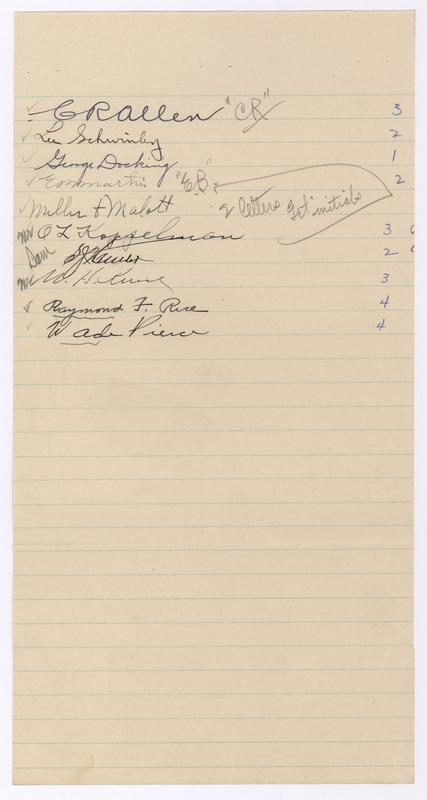 ✓ C R Allen "CR" 3
✓ Lee Schwinley 2
✓ George Docking 1
✓ E B Martin "E.B." 2
2 letters get initials
✓ Miller F Malott
Mr O L Koppelman 3
Dave 2
Mr W. H. 3
✓ Raymond F. Rice 4
✓ Wade Pierce 4